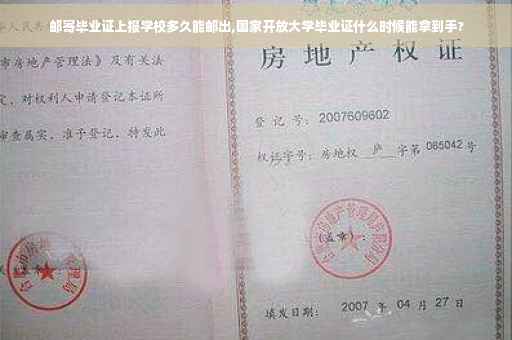 邮寄毕业证上报学校多久能邮出,国家开放大学毕业证什么时候能拿到手?
市房地产管理法》及有关法
定,对权利人申请登记本证所
审查属实,准予登记,特发此
房地产权证
登记号: 2007609602
权证字号: 房地权 庐 字第 085042 号
(盖章):
填发日期: 2007 年 04 月 27 日